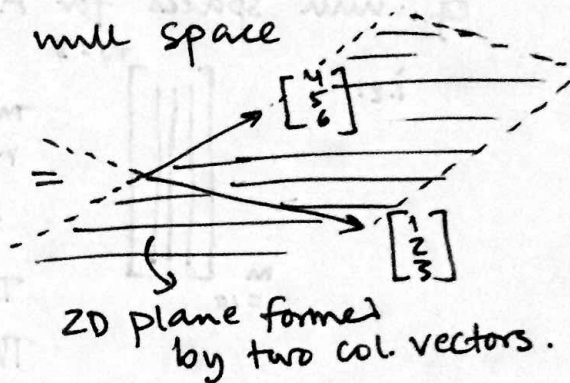 null space
[4
5
6]
=
[1
2
3]
2D plane formed
by two col. vectors.